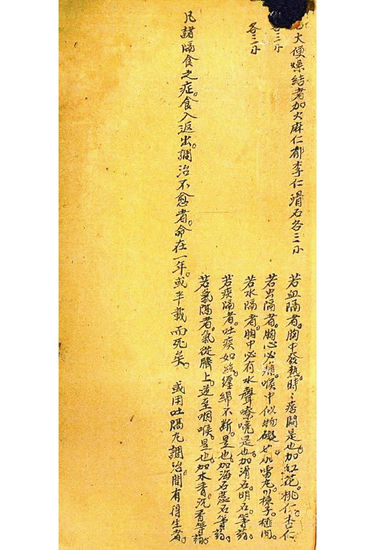 大便燥結者加火麻仁郁李仁滑石各三小
各三小
各三小
若血隔者。胸中發熱時々悶是也。加紅花。桃仁。杏仁
若虫隔者。胸心必痛喉中似物礙也。加雷丸
若水隔者。胸中必有水聲是也。加滑石明石等药
若痰隔者。吐痰如絲纏綿不斷。是也。加海石蕊石等药
若氣隔者。氣從臍上逆至咽喉。是也。加木香沉香等药
凡諸隔食之症。食入返出。調治不愈者。命在一年。或半載而死矣。或用吐隔丸調治間有得生者。